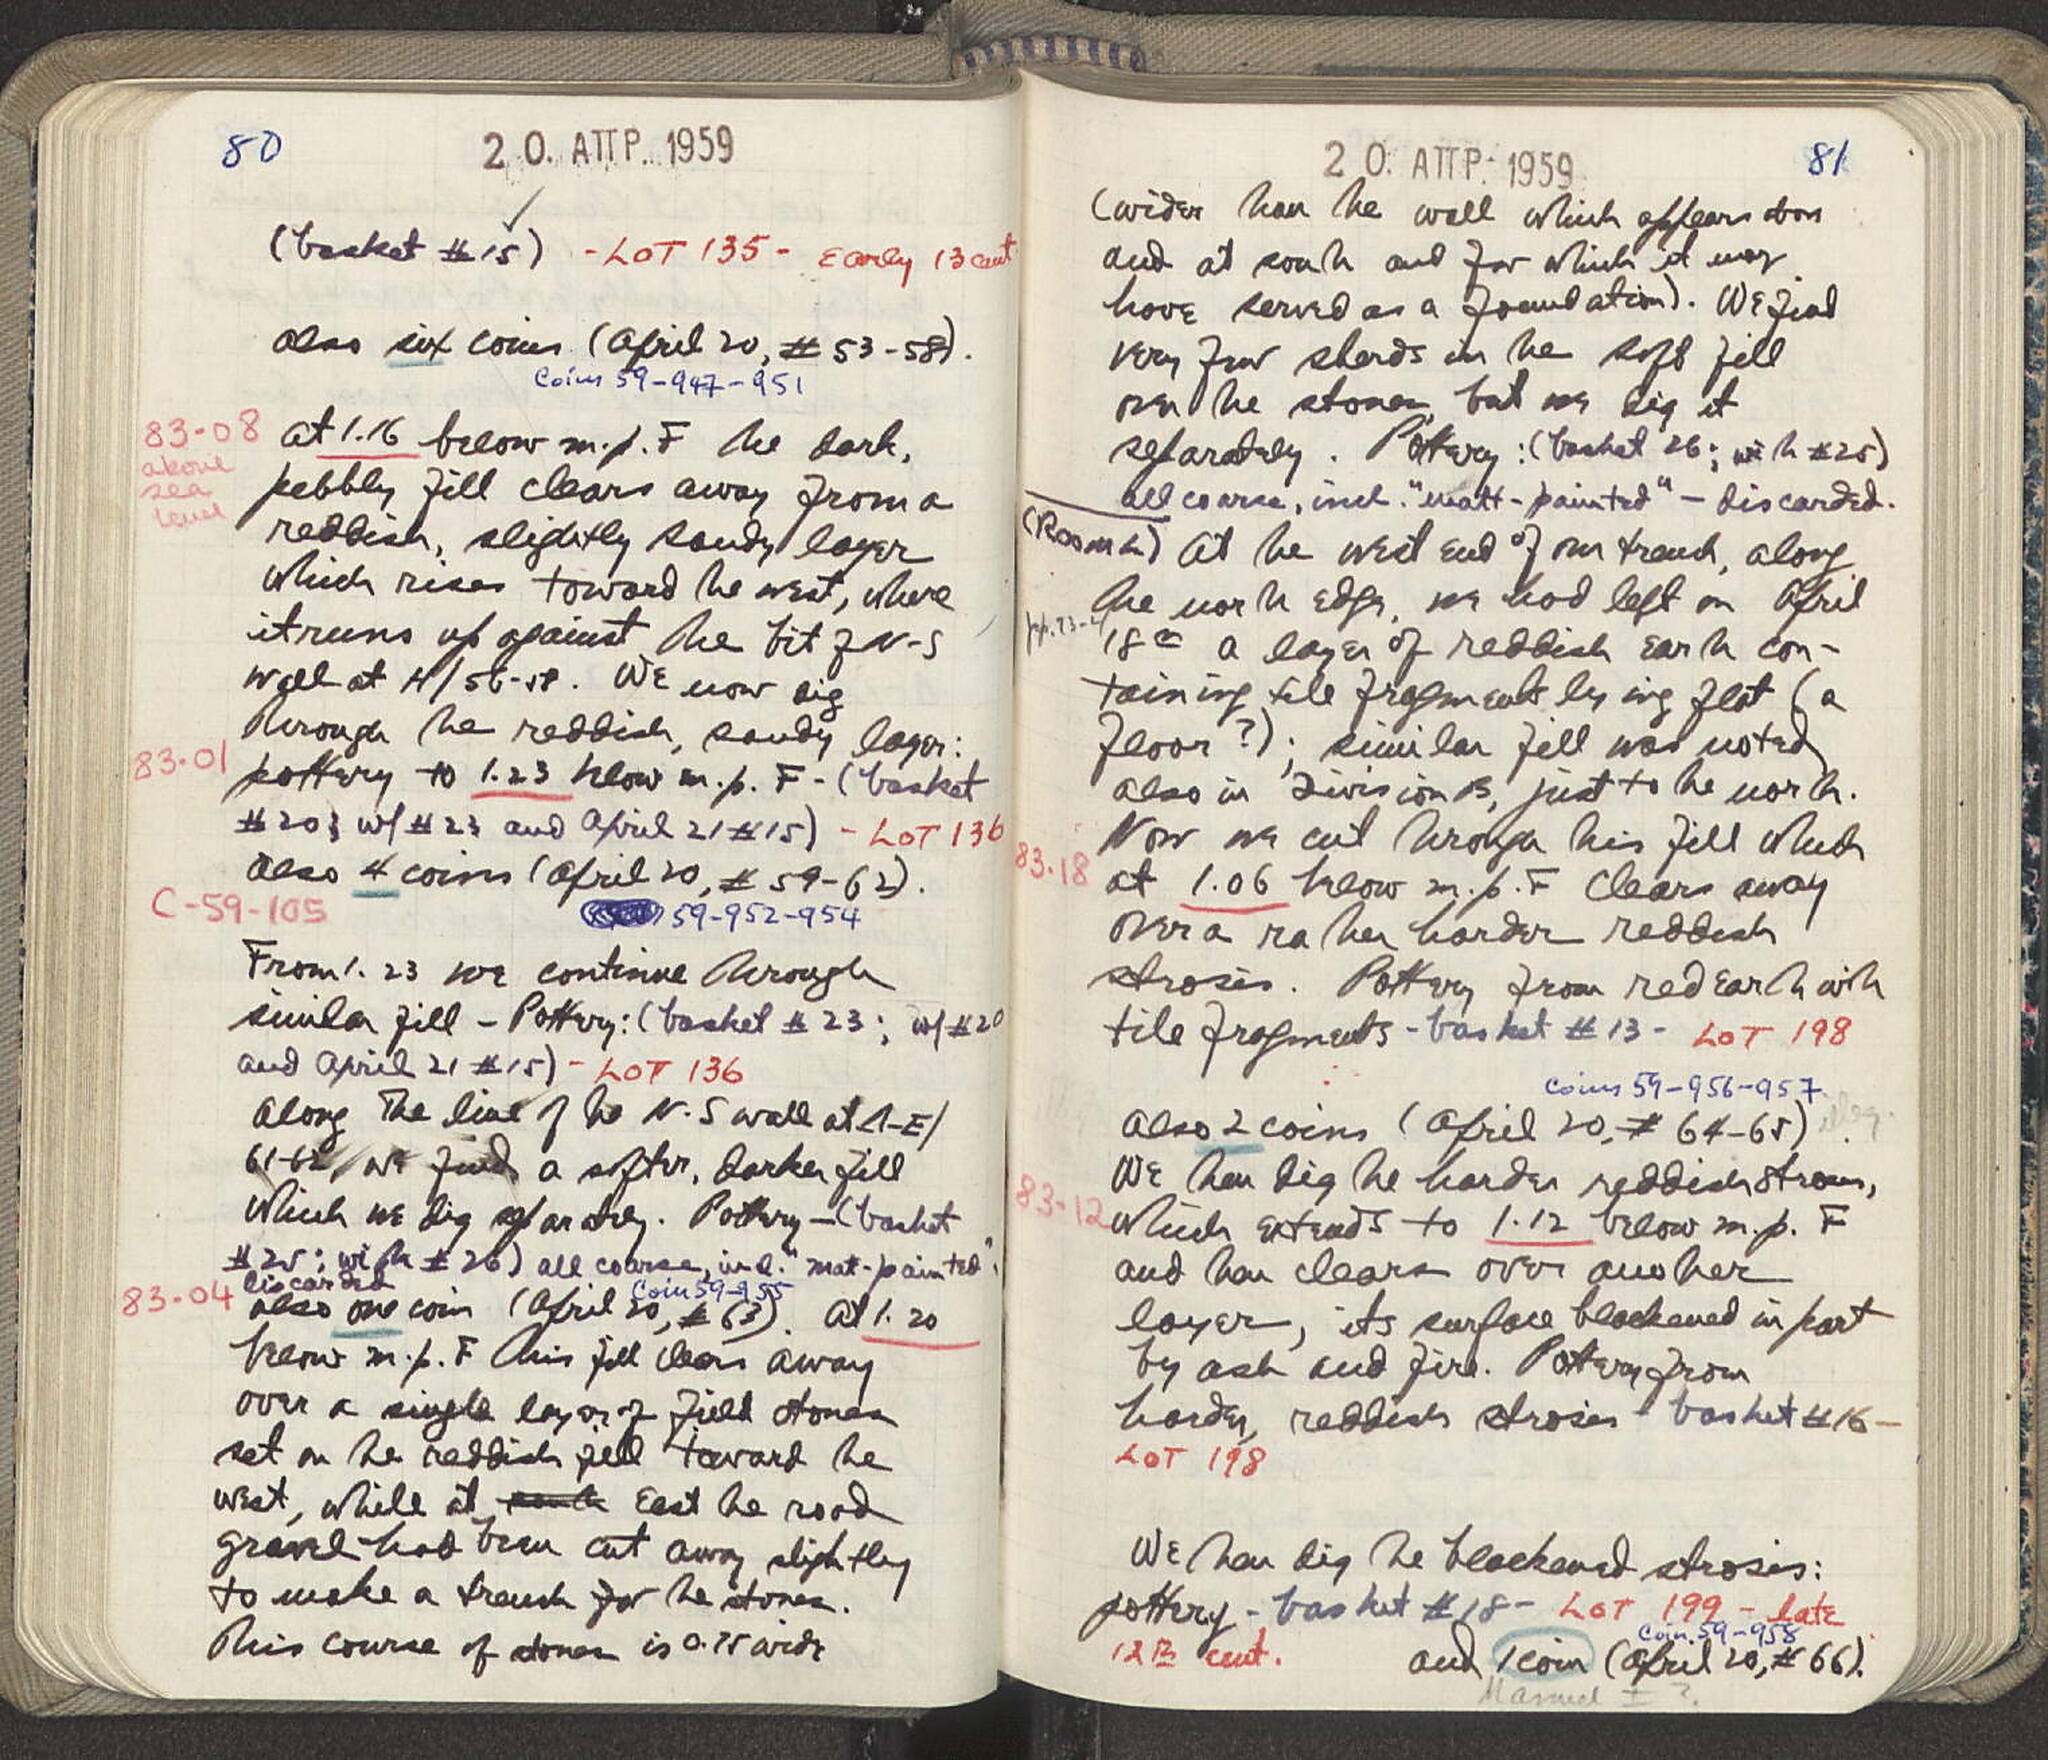 80
20. ΑΠΡ. 1959
(basket #15) - LOT 135 - Early 13 cent
also six coins (April 20, # 53-58).
Coins 59-947-951
83.08
above
sea
level
at 1.16 below m.p. F the dark,
pebbly fill clears away from a
reddish, slightly sandy layer
which rises toward the west, where
it runs up against the bit of N-S
wall at H/56-58. We now dig
through the reddish, sandy layer:
83.01
pottery to 1.23 below m.p. F - (basket
#20; w/ #23 and April 21 #15) - LOT 136
also 4 coins (April 20, # 59-62).
C-59-105
59-952-954
From 1.23 we continue through
similar fill - Pottery: (basket #23; w/ #20
and April 21 #15) - LOT 136
Along the line of the N-S wall at Λ-Ε/
61-62, we find a softer, darker fill
which we dig separately. Pottery - (basket
#25; with #26) all coarse, incl. "mat-painted",
discarded
Coin 59-955
83.04
also one coin (April 20, #63). At 1.20
below m.p. F this fill clears away
over a single layer of field stones
set on the reddish fill toward the
west, while at east the road
gravel had been cut away slightly
to make a trench for the stones.
This course of stones is 0.75 wide
81
20. ΑΠΡ. 1959
(wider than the wall which appears
and at south and for which it may
have served as a foundation). We find
very few sherds in the soft fill
over the stones, but we dig it
separately. Pottery: (basket 26; with #25)
all coarse, incl. "matt-painted" - discarded.
(Room L) At the west end of our trench, along
the north edge, we had left on April
pp. 73-4
18 a layer of reddish earth con-
taining tile fragments lying flat (a
floor?); similar fill was noted
also in Division B, just to the north.
Now we cut through this fill which
83.18
at 1.06 below m.p. F clears away
over a rather harder reddish
strosis. Pottery from red earth with
tile fragments - basket #13 - LOT 198
coins 59-956-957
also 2 coins (April 20, # 64-65).
We then dig the harder reddish stroses,
83.12
which extends to 1.12 below m.p. F
and then clears over another
layer, its surface blackened in part
by ash and fire. Pottery from
harder, reddish strosis - basket #16 -
LOT 198
We then dig the blackened strosis:
pottery - basket #18 - LOT 199 - late
12th cent.
Coin 59-958
and 1 coin (April 20, #66).
Manuel I ?.